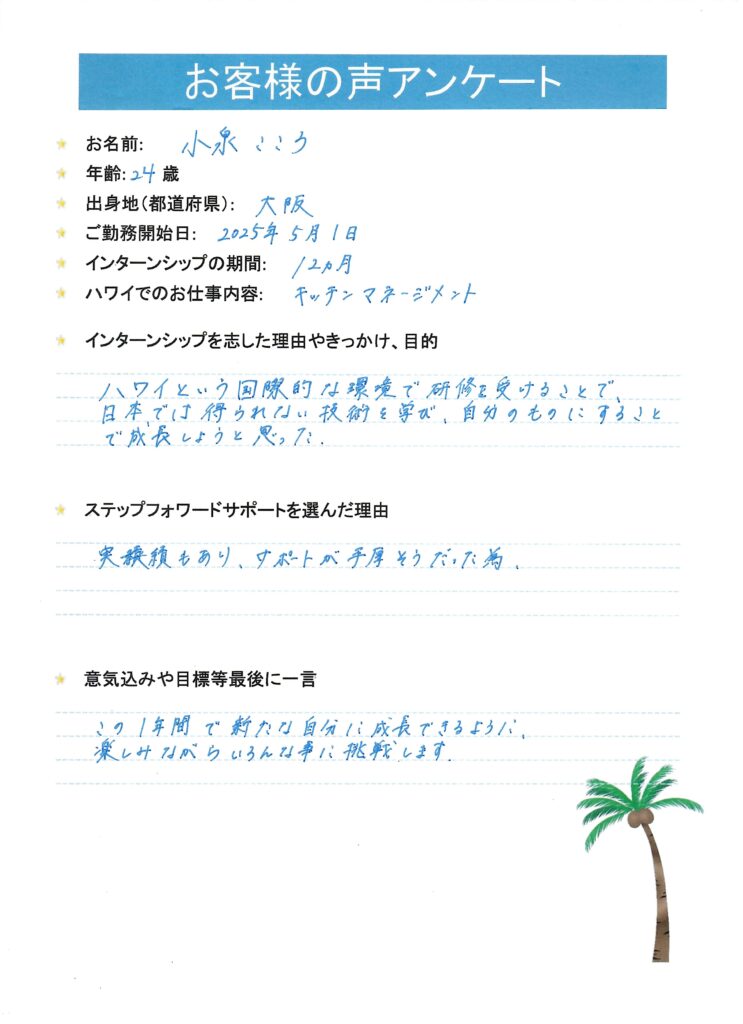 お客様の声アンケート
お名前: 小泉 こころ
年齢: 24 歳
出身地(都道府県): 大阪
ご勤務開始日: 2025年 5月 1日
インターンシップの期間: 12ヵ月
ハワイでのお仕事内容: キッチンマネージメント
インターンシップを志した理由やきっかけ、目的
ハワイという国際的な環境で研修を受けることで、
日本では得られない技術を学び、自分のものにすること
で成長しようと思った.
ステップフォワードサポートを選んだ理由
実績もあり、サポートが手厚そうだった為.
意気込みや目標等最後に一言
この1年間で新たな自分に成長できるように、
楽しみながらいろんな事に挑戦します.